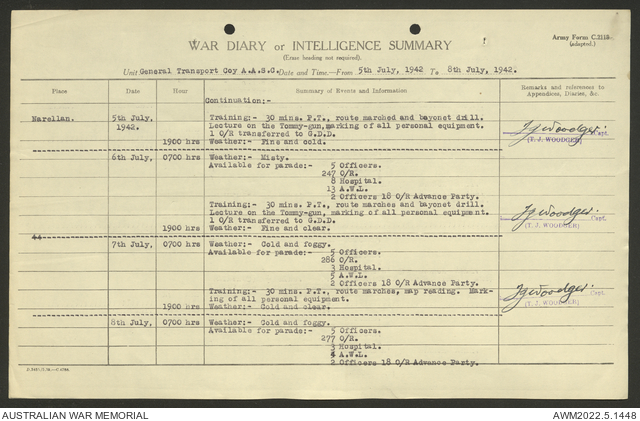 Army Form C.2118
(adapted.)
WAR DIARY or INTELLIGENCE SUMMARY
(Erase heading not required).
Unit General Transport Coy A.A.S.C. Date and Time.—From 5th July, 1942 To 8th July, 1942.
Place Date Hour Summary of Events and Information Remarks and references to
Appendices, Diaries, &c.
Continuation:-
Narellan. 5th July, Training:- 30 mins. P.T., route marched and bayonet drill.
1942. Lecture on the Tommy-gun, marking of all personal equipment.
1 O/R transferred to G.D.D. TJWoodger. Capt.
1900 hrs Weather:- Fine and cold. (T. J. WOODGER)
6th July, 0700 hrs Weather:- Misty.
Available for parade:- 5 Officers.
247 O/R.
8 Hospital.
13 A.W.L.
2 Officers 18 O/R Advance Party.
Training:- 30 mins. P.T., route marches and bayonet drill.
Lecture on the Tommy-gun, marking of all personal equipment.
1 O/R transferred to G.D.D. TJWoodger. Capt.
1900 hrs Weather:- Fine and clear. (T. J. WOODGER)
7th July, 0700 hrs Weather:- Cold and foggy.
Available for parade:- 5 Officers.
286 O/R.
3 Hospital.
5 A.W.L.
2 Officers 18 O/R Advance Party.
Training:- 30 mins. P.T., route marches, map reading. Mark-
ing of all personal equipment. TJWoodger. Capt.
1900 hrs Weather:- Cold and clear. (T. J. WOODGER)
8th July, 0700 hrs Weather:- Cold and foggy.
Available for parade:- 5 Officers.
277 O/R.
3 Hospital.
4 A.W.L.
2 Officers 18 O/R Advance Party.
AUSTRALIAN WAR MEMORIAL AWM2022.5.1448